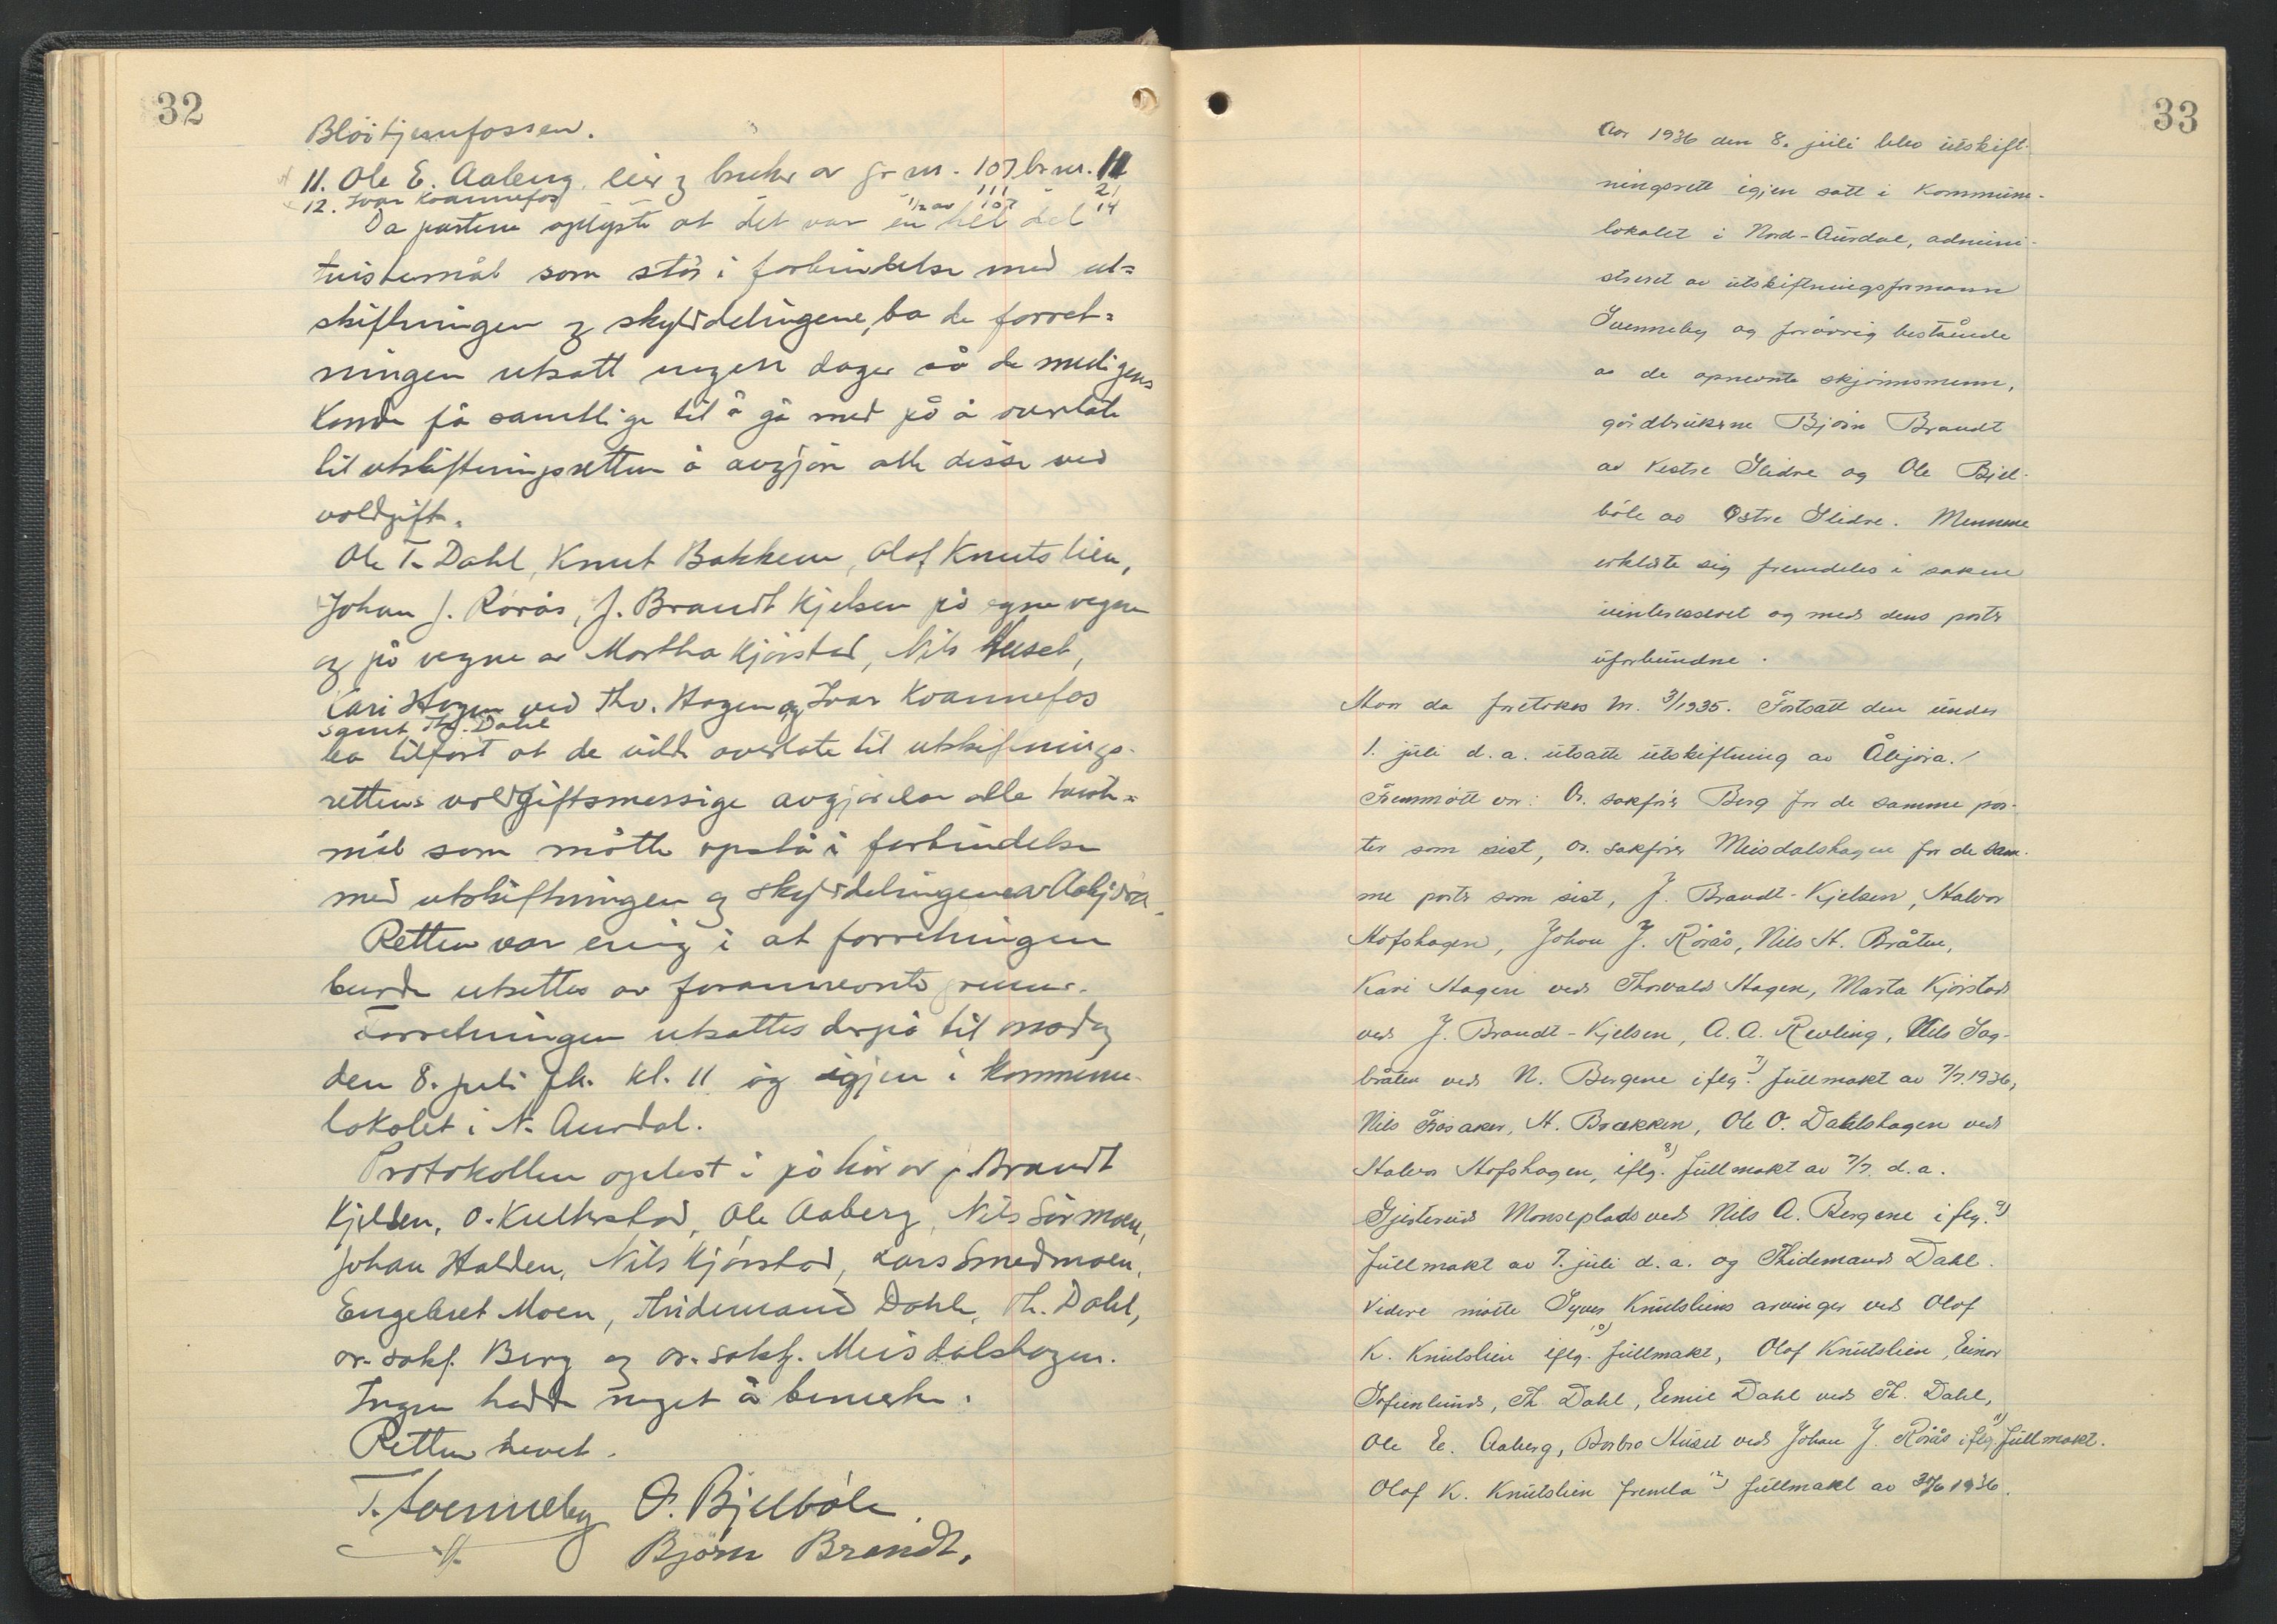 32
Blöitjernfossen.
11. Ole E. Aaberg, eier og bruker av gr nr. 107 br nr. 11
111 21
12. Ivar Kvannefos 1/2 av 107 14
Da partene oplyste at det var en hel del
tvistemål som stös i forbindelse med ut=
skiftningen og skylddelingene, ba de forret=
ningen utsatt nogen dager så de muligens
kunde få samtlige til å gå med på å overlate
til utskiftningsretten å avgjöre alle disse ved
voldgift.
Ole T. Dahl, Knut Bakken, Olaf Knutslien,
Johan J. Rörås, J. Brandt Kjelsen på egne vegne
og på vegne av Martha Kjörstad, Nils Huset,
Kari Hagen ved Thv. Hagen og Ivar Kvannefos
samt Th. Dahl
ba tilfört at de vilde overlate til utskiftnings-
rettens voldgiftsmessige avgjörelse alle tviste=
mål som måtte opstå i forbindelse
med utskiftningen og skylddelingene av Aabjöra.
Retten var enig i at forretningen
burde utsettes av forannevnte grunner.
Forretningen utsattes derpå til onsdag
den 8. juli fk. kl. 11 og igjen i kommune-
lokalet i N. Aurdal.
Protokollen oplest i påhör av J. Brandt
Kjelsen, O. Kultestad, Ole Aaberg, Nils Sörmoen,
Johan Halden, Nils Kjörstad, Lars Smedmoen,
Engebret Moen, Thidemand Dahl, Th. Dahl,
or. sakf. Berg og or. sakf. Meisdalshagen.
Ingen hadde noget å bemerke.
Retten hevet.
T. Svenneby O. Bjelböle.
Björn Brandt.
33
Aar 1936 den 8. juli blev utskift-
ningsrett igjen satt i Kommune-
lokalet i Nord-Aurdal, admini-
streret av utskiftningsformann
Svenneby og forövrig bestående
av de opnevnte skjönnsmenn,
gårdbrukerne Björn Brandt
av Vestre Slidre og Ole Bjel-
böle av Östre Slidre. Mennene
erklärte sig fremdeles i saken
uinteresseret og med dens parter
uforbundne.
Man da foretokes Nr. 3/1935. Fortsatt den under
1. juli d.a. utsatte utskiftning av Åbjöra.
Fremmött var: Or. sakförer Berg for de samme par-
ter som sist, or. sakförer Meisdalshagen for de sam-
me parter som sist, J. Brandt-Kjelsen, Halvor
Hofshagen, Johan J. Rörås, Nils H. Bråten,
Kari Hagen ved Thorvald Hagen, Marta Kjörstad
ved J. Brandt-Kjelsen, A. A. Revling, Nils Sag-
bråten ved N. Bergene iflg. 7) fullmakt av 7/7.1936,
Nils Frösaker, H. Brækken, Ole O. Dahlshagen ved
Halvor Hofshagen, iflg. 8) fullmakt av 7/7. d.a.
Gjesterud Monseplads ved Nils A. Bergene iflg. 9)
fullmakt av 7. juli d.a. og Thidemand Dahl.
Videre mötte Syver Knutsliens arvinger ved Olaf
K. Knutslien iflg. 10) fullmakt, Olaf Knutslien, Einar
Sofienlund, Th Dahl, Emil Dahl ved Th. Dahl,
Ole E. Aaberg, Barbro Huset ved Johan J. Rörås iflg. 11) fullmakt.
Olaf K. Knutslien fremla 12) fullmakt av 30/6 1936.